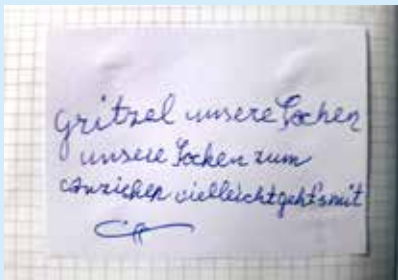 gritzel unsere Socken
unsere Socken zum
anziehen vielleicht geht's mit